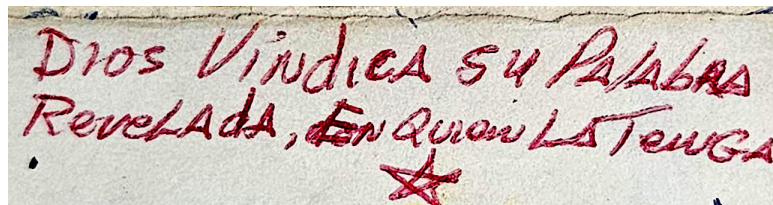 Dios Vindica su Palabra
Revelada, en Quien La Tenga